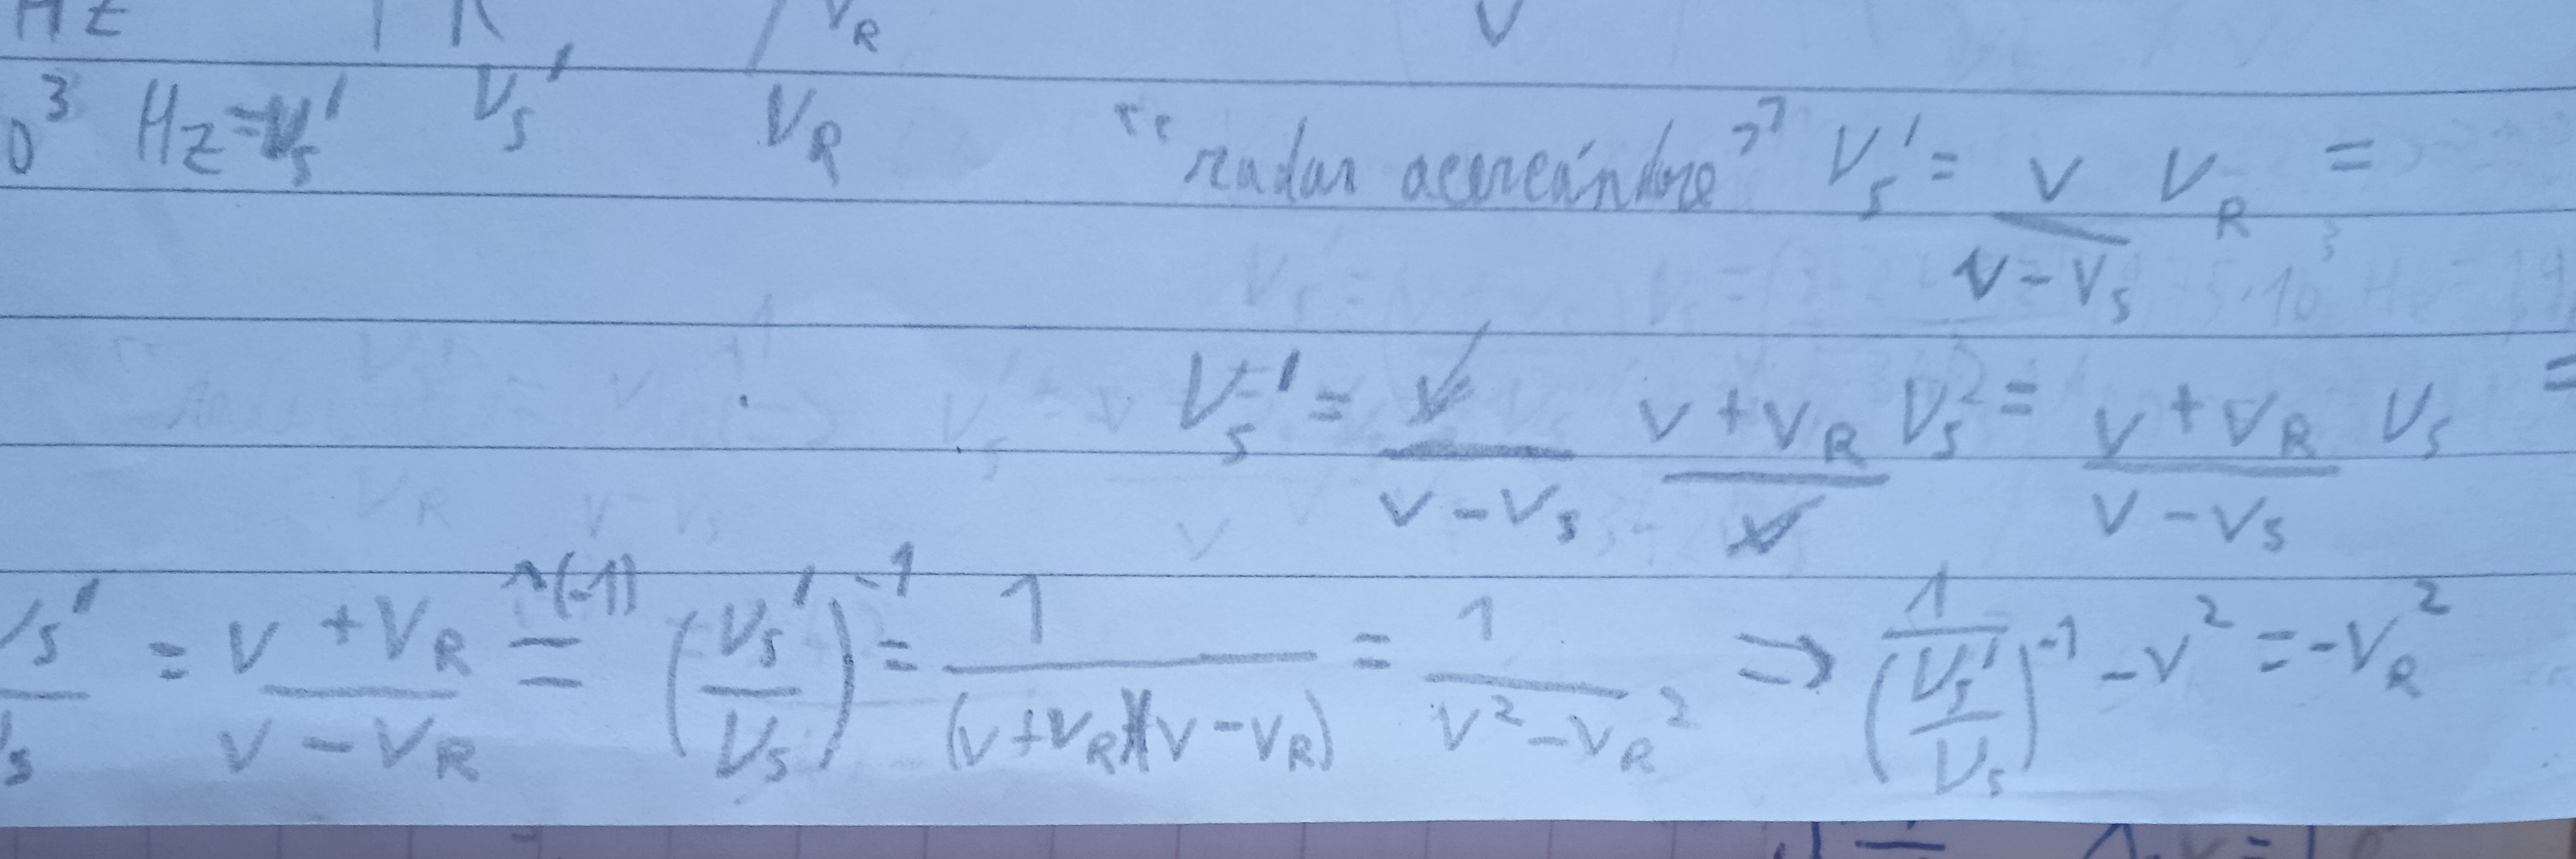 Hz V_R V
0³ Hz = ν_s' ν_s' ν_R "radar acercándose" ν_s' = v/(v - v_s) ν_R =
ν_s' = v/(v - v_s) (v + v_R)/v ν_s = (v + v_R)/(v - v_s) ν_s =
ν_s'/ν_s = (v + v_R)/(v - v_R) =^(^(-1)) (ν_s'/ν_s)^-1 = 1/((v + v_R)(v - v_R)) = 1/(v² - v_R²) ⇒ 1/(ν_s'/ν_s)^-1 - v² = -v_R²